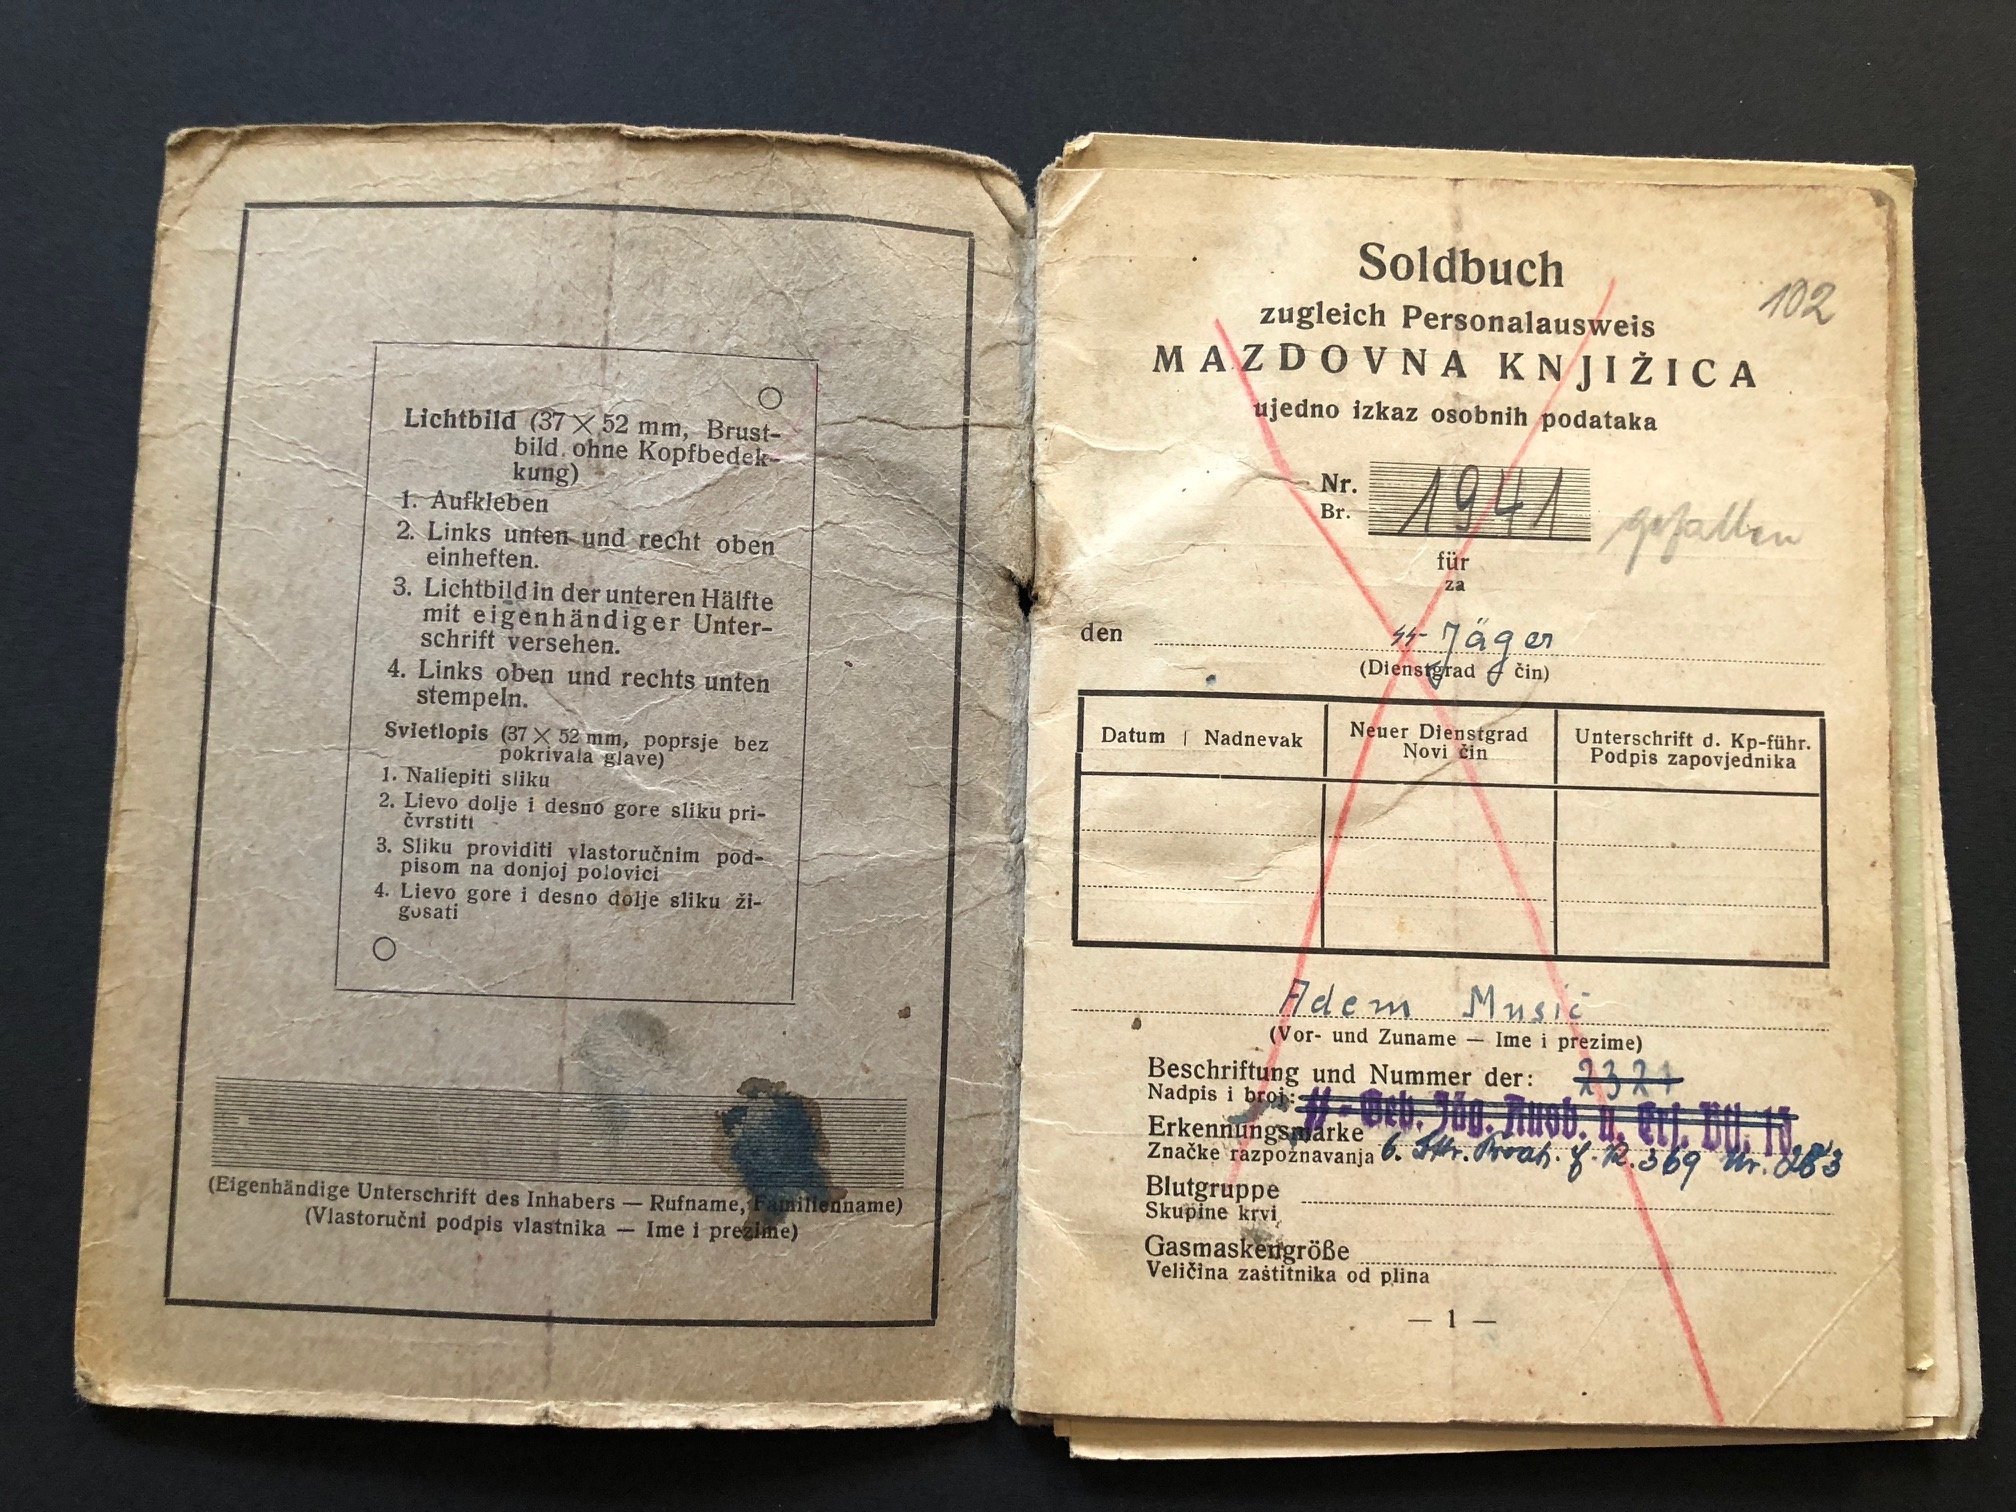 Lichtbild (37 × 52 mm, Brust-
bild ohne Kopfbedek-
kung)
1. Aufkleben
2. Links unten und recht oben
einheften.
3. Lichtbild in der unteren Hälfte
mit eigenhändiger Unter-
schrift versehen.
4. Links oben und rechts unten
stempeln.
Svietlopis (37 × 52 mm, poprsje bez
pokrivala glave)
1. Naliepiti sliku
2. Lievo dolje i desno gore sliku pri-
čvrstiti
3. Sliku providiti vlastoručnim pod-
pisom na donjoj polovici
4. Lievo gore i desno dolje sliku ži-
gosati
(Eigenhändige Unterschrift des Inhabers — Rufname, Familienname)
(Vlastoručni podpis vlastnika — Ime i prezime)
102
Soldbuch
zugleich Personalausweis
MAZDOVNA KNJIŽICA
ujedno izkaz osobnih podataka
Nr. 1941
Br.
gefallen
für
za
den SS-Jäger
(Dienstgrad čin)
Datum | Nadnevak
Neuer Dienstgrad
Novi čin
Unterschrift d. Kp-führ.
Podpis zapovjednika
Adem Musić
(Vor- und Zuname — Ime i prezime)
Beschriftung und Nummer der: 2321
Nadpis i broj: SS-Geb. Jäg. Ausb. u. Ers. Btl. 13
Erkennungsmarke
Značke razpoznavanja 6. Kroat. J. R. 369 Nr. 283
Blutgruppe
Skupine krvi
Gasmaskengröße
Veličina zaštitnika od plina
— 1 —